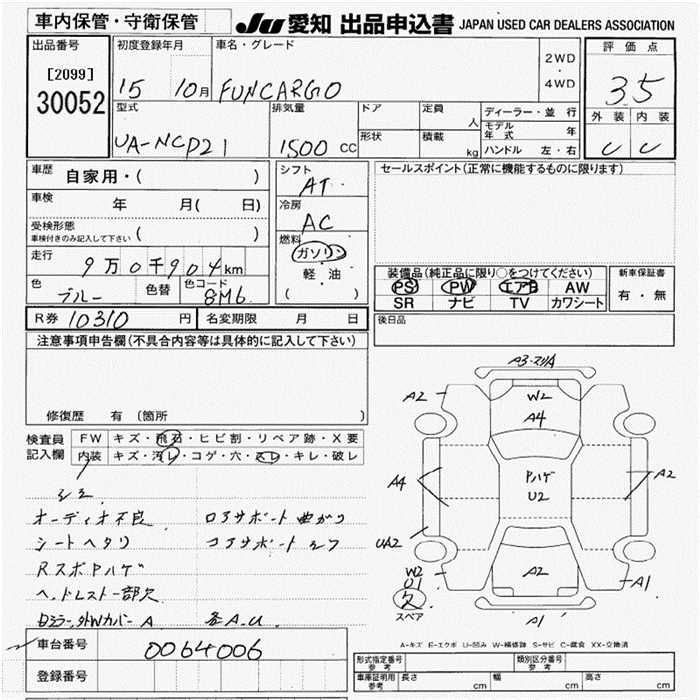 車内保管・守衛保管
JU 愛知 出品申込書 JAPAN USED CAR DEALERS ASSOCIATION
出品番号
[2099]
30052
初度登録年月
15 10月
車名・グレード
FUNCARGO
2WD
・
4WD
評価点
3.5
外装 内装
C C
型式
UA-NCP21
排気量
1500 CC
ドア
形状
定員
人
積載
kg
ディーラー・並行
モデル年式 年
ハンドル 左・右
車歴 自家用・( )
車検 年 月( 日)
受検形態
車検付きのみ記入して下さい ( )
走行 9万0千904km
色 ブルー 色替 色コード 8M6
シフト
AT
冷房
AC
燃料
ガソリン
軽・油
( )
セールスポイント(正常に機能するものに限ります)
装備品(純正品に限り○をつけてください)
PS PW エアB AW
SR ナビ TV カワシート
新車保証書
有・無
後日品
R券 10310 円 名変期限 月 日
注意事項申告欄(不具合内容等は具体的に記入して下さい)
修復歴 有 (箇所 )
検査員記入欄
FW キズ・飛石・ヒビ割・リペア跡・X要
内装 キズ・汚レ・コゲ・穴・スレ・キレ・破レ
シミ
オーディオ不良 ロアサポート曲がり
シートヘタリ コアサポート
RスポPハゲ
ヘッドレスト一部欠
Dミラー,外Wカバー A 各A.U
車台番号 0064006
登録番号
A3
A2
W2
A4
Pハゲ
U2
A4
A2
UA2
W2
U1
欠
スペア
A2
A1
A1
A-キズ E-エクボ U-凹み W-補修跡 S-サビ C-腐食 XX-交換済
形式指定番号
参考
類別区分番号
参考
車庫証明用
参考
長さ cm 幅 cm 高さ cm